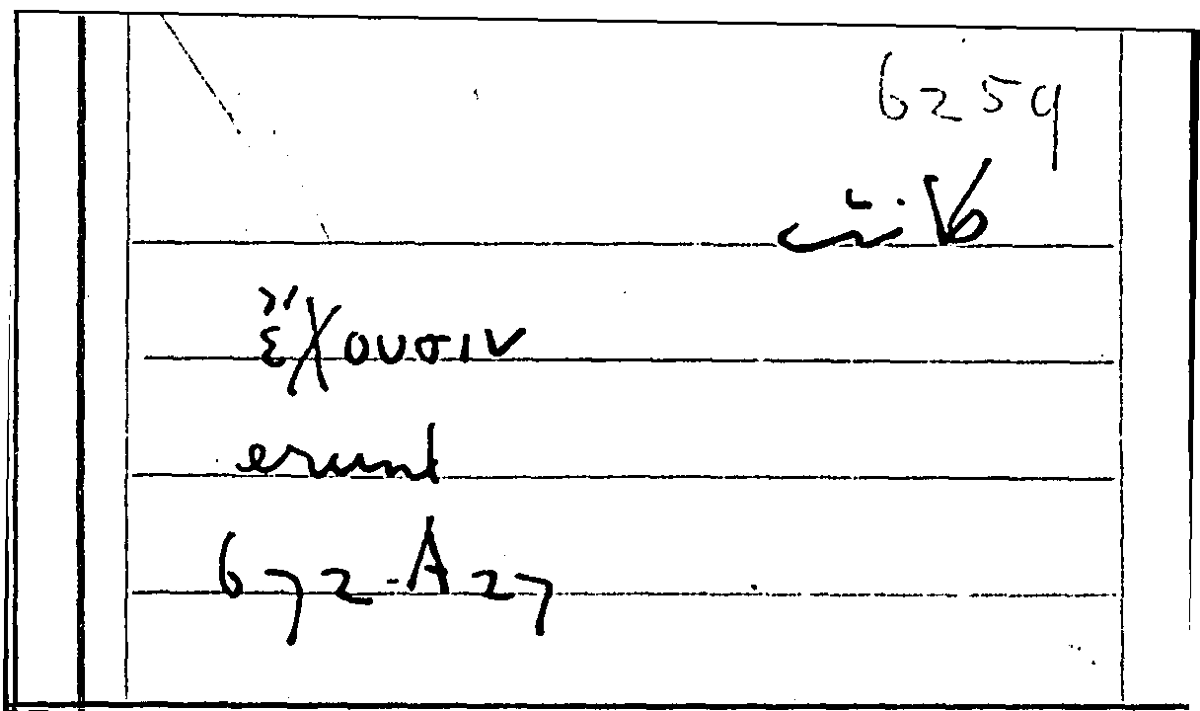 6259
ἔχουσιν
erunt
672-A27